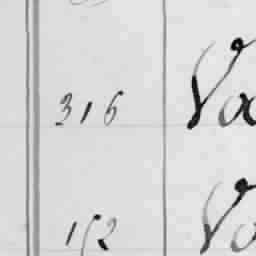 316 Vo
152 Vo